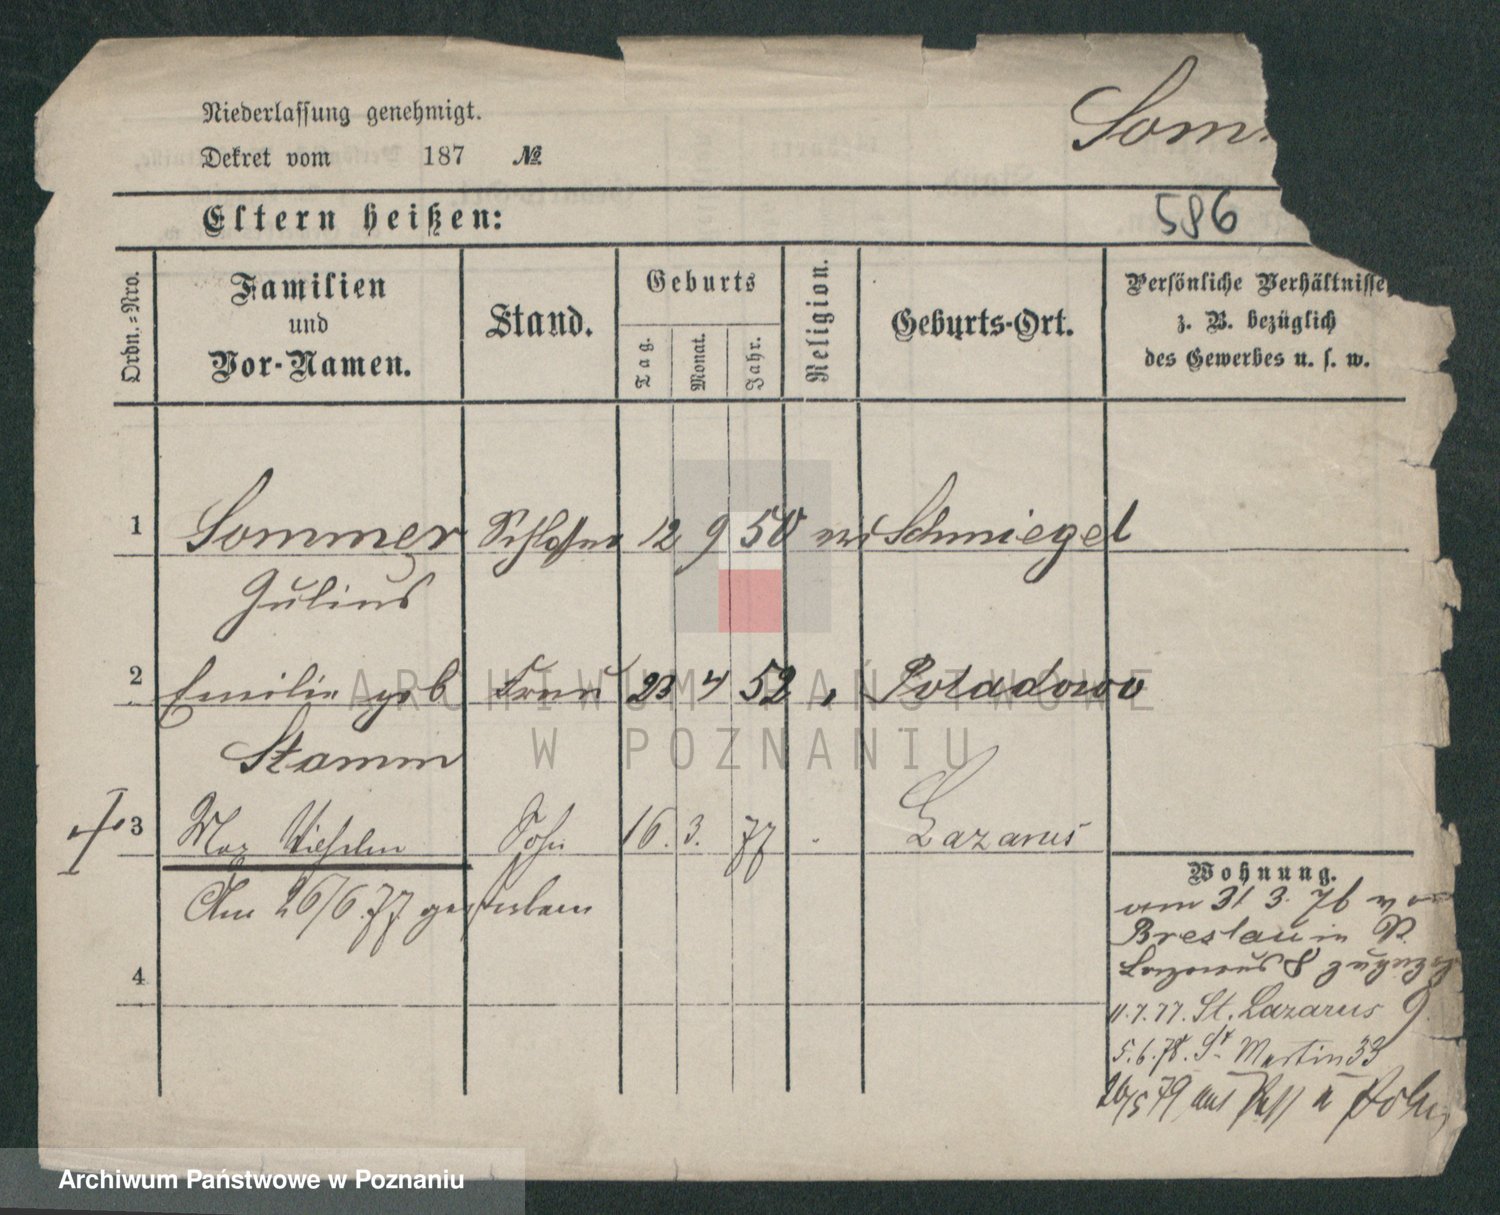 Niederlassung genehmigt.
Som
Dekret vom 187 №
Eltern heißen:
586
Ordn.-Nro.
Familien
und
Vor-Namen.
Stand.
Geburts
Tag.
Monat.
Jahr.
Religion.
Geburts-Ort.
Persönliche Verhältnisse
z. B. bezüglich
des Gewerbes u. s. w.
1 Sommer Schlosser 12 9 50 Schmiegel
Julius
2 Emilie geb Frau 23 4 52 Poladowo
Stamm
3 Max Wilhelm Sohn 16. 3. 77 Lazarus
Am 26/6.77 gestorben
4
Wohnung.
am 31 3. 76 von
Breslau in St.
Lazarus 8
11.7.77. St. Lazarus 9.
5.6.78. St Martin 33
26/5 79 aus
ARCHIWUM PAŃSTWOWE
W POZNANIU
Archiwum Państwowe w Poznaniu